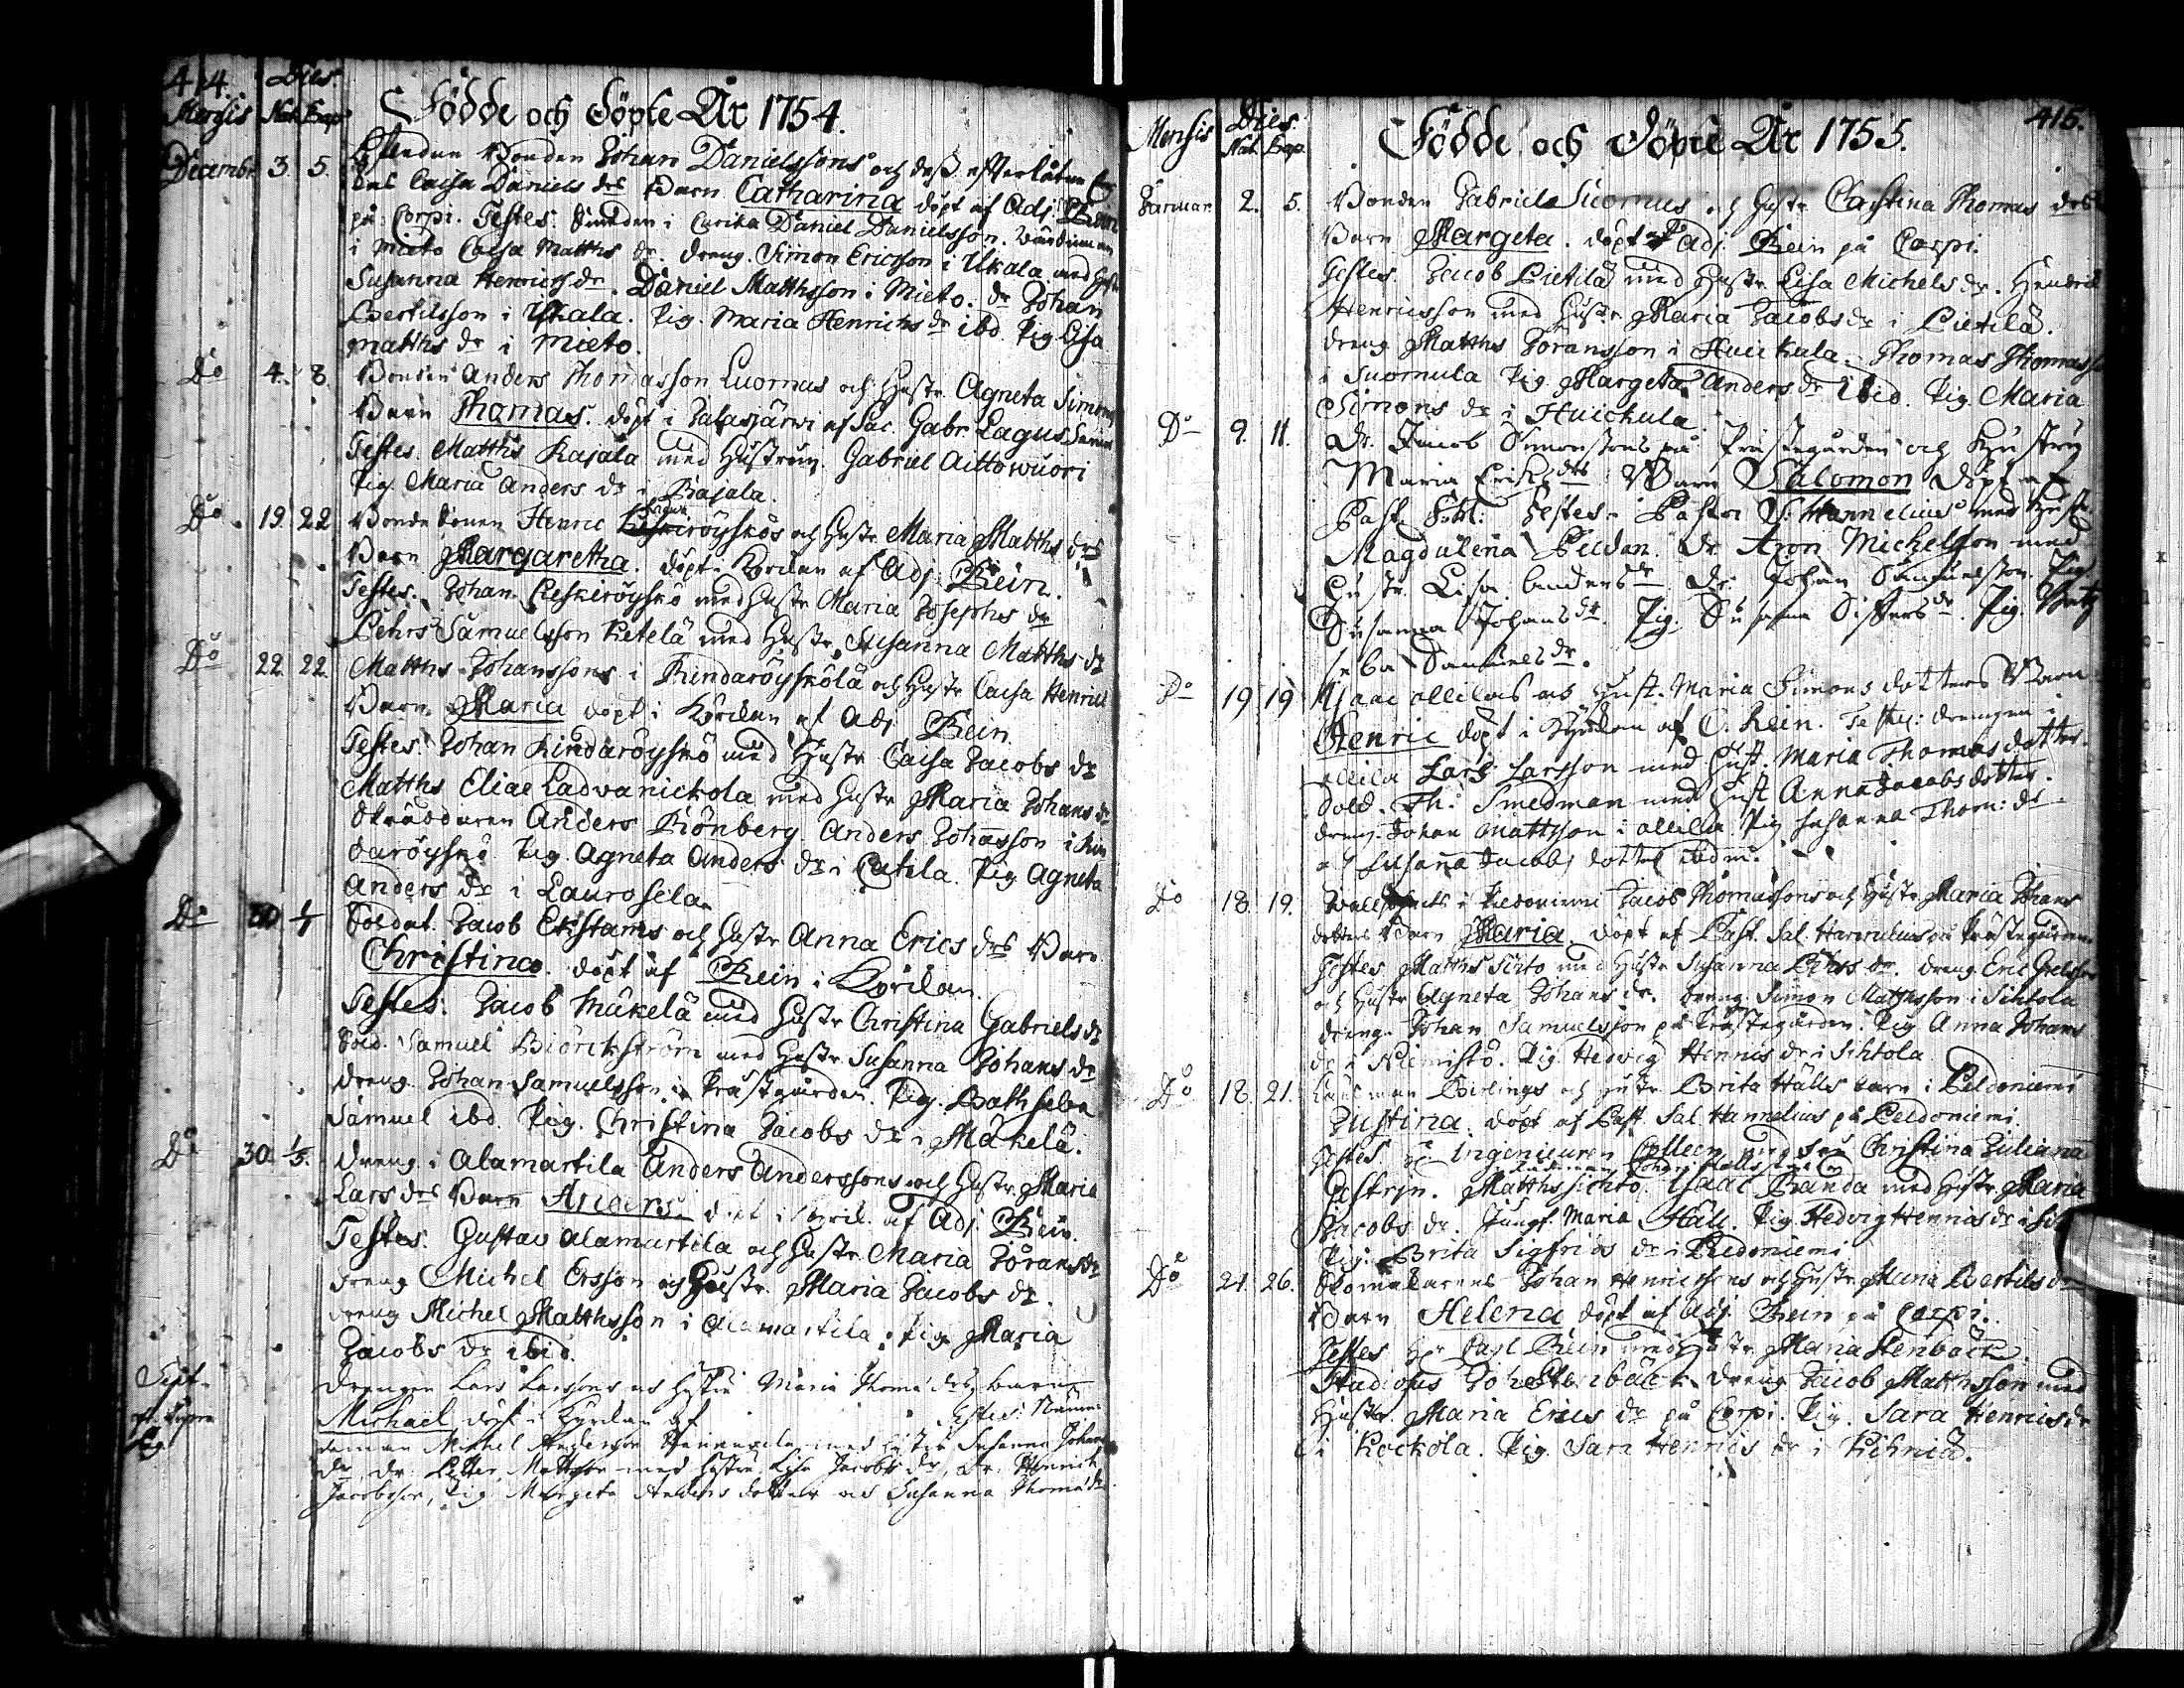 414. Dies.
Mensis Nat. Bap. Födde och Döpte År 1754.
Decembr 3. 5. Bonden Johan Danielssons och dess efterlåtne
Caisa Daniels drs Barn Catharina döpt af Adj. Rein
på Corpi. Testes. Smeden i Curika Daniel Danielsson.
i Mieto Caisa Matths dr. Dreng. Simon Ericsson i Ukala med Hust
Susanna Henrichs dr. Daniel Matthsson i Mieto. dr Johan
Bertilsson i Ukala. Pig. Maria Henrichs dr ibd. Pig Lisa
Matths dr i Mieto.
Do 4. 8. Bonden Anders Thomasson Luomus och Hustr. Agneta Simons
Barn Thomas. döpt i Jalasjärvi af Sac. Gabr. Lagus
Testes. Matths Kajala med Hustrun. Gabriel Aittowuori
Pig. Maria Anders dr i Kajala.
Do 19. 22 Bonde Sonen Henric och Hustr. Maria Matths drs
Barn Margaretha. döpt i Kyrckan af Adj. Rein.
Testes. Johan Keskiröyskö med Hustr. Maria Josephs dr
Pehrs Samuelsson Ketelä med Hustr. Susanna Matths dr
Do 22. 22. Matths Johanssons i Rindaröyskölä och Hustr Caisa Henrics
Barn. Maria döpt i Kyrckan af Adj. Rein.
Testes. Johan Rindaröyskö med Hustr Caisa Jacobs dr
Matths Eliae Ladvanickola med Hustr Maria Johans dr
Skräddaren Anders Rönberg. Anders Johasson i Rin
daröyskö. Pig. Agneta Anders dr i Catila. Pig Agneta
Anders dr i Laurosela.
Do 30 1/1 Soldat. Jacob Ekstams och Hustr Anna Erics drs Barn
Christina. döpt af Rein i Kyrckan.
Testes. Jacob Mäkelä med Hustr Christina Gabriels dr
Sold. Samuel Biörckström med Hustr. Susanna Johans dr
Dreng. Johan Samuelsson i Prästgården. Pig. Bathseba
Samuel ibd. Pig. Christina Jacobs dr i Mäkelä.
Do 30. 1/5. Dreng. i Alamartila Anders Anderssons och Hustr. Maria
Lars drs Barn Anders. döpt i Kyrck. af Adj. Rein.
Testes. Gustav Alamartila och Hustr. Maria Jörans dr
Dreng Michel Ersson och Hustr Maria Jacobs dr.
Dreng Michel Matthsson i Alamartila. Pig Maria
Jacobs dr ibid.
Sept. Drengen Lars Larssons och Hustru Maria Thomæ drs barn
Michael döpt i Kyrckan af Testes: Nämn
deman Michel Andersson med Hustru Susanna Johans
dr, dr. Petter Mattsson med Hustru Lisa Jacobs dr, dr. Henrich
Jacobsson, Pig Margeta Anders dotter och Susanna Thomæ dr
415.
Mensis Dies. Nat. Bap. Födde och Döpte År 1755.
Januar. 2. 5. Bonden Gabriels Luomus och Hustr Christina Thomas drs
Barn Margeta. döpt af Adj. Rein på Corpi.
Testes. Jacob Pietilä med Hustr Lisa Michels dr. Hendric
Henricsson med Hustr. Maria Jacobs dr i Pietilä.
Dreng Matths Jöransson i Huickula. Thomas Thomasson
i Luomula Pig. Margeta Anders dr ibid. Pig. Maria
Simons dr i Huickula.
Do 9. 11. Dr. Jacob Simonssons på Prästegården och Hustru
Maria Ericks drs Barn Salomon döpt af
Past. Testes. Pastor S. Hannelius med Hustr
Magdalena Peldan. Dr. Aron Michelsson med
Hustr. Lisa Anders dr. Dr. Johan Samuelsson. Pig
Susanna Johans dr. Pig. Susanna Sifferds dr. Pig. Bath
seba Samuels dr.
Do 19 19 Isaac ollilas och Hust. Maria Simons dotters Barn
Henric döpt i Kyrckan af C. Rein. Testes: drengen i
ollila Lars Larsson med Hust. Maria Thomas dotter.
Sold. Th. Smedman med Hust Anna Jacobs dotter.
dreng. Johan Mattsson i ollila. Pig Susanna Thom: dr
och Susanna Jacobs dotter ibdm.
Do 18. 19. i Peldoniemi Jacob Thomassons och Hustr Maria Johans
dotters Barn Maria. döpt af Past. Sal. Hannelius på Prästegården
Testes. Matths Sihto med Hustr Susanna Pehrs dr. Dreng Eric
och Hustr Agneta Johans dr. Dreng. Simon Matthsson i Sihtola
Dreng. Johan Samuelsson på Prästegården. Pig Anna Johans
dr i Niemistö. Pig. Hedvig Hennics dr i Sihtola.
Do 18. 21. Birlings och Hustr Brita Hälls barn i Peldoniemi
Justina. döpt af Past. Sal. Hannelius på Peldoniemi.
Testes Hr Ingenieuren Colleen med Fru Christina Juliana
Castren. Matths Sichto, Isaac Panda med Hustr Maria
Jacobs dr. Jungf. Maria Häll. Pig. Hedvig Hennics dr i
Pig. Brita Sigfrids dr i Peldoniemi
Do 21. 26. Skomakarens Johan Henricssons och Hustr. Maria Bertils dr
Barn Helena döpt af Adj. Rein på Corpi.
Testes Hr Capl. Rein med Hustr Maria Stenbäck
Studiosus Joh. Stenbäck. Dreng Jacob Matthsson med
Hustr. Maria Erics dr på Corpi. Pig. Sara Henrics dr
i Kockola. Pig. Sara Henrics dr i Kihniä.